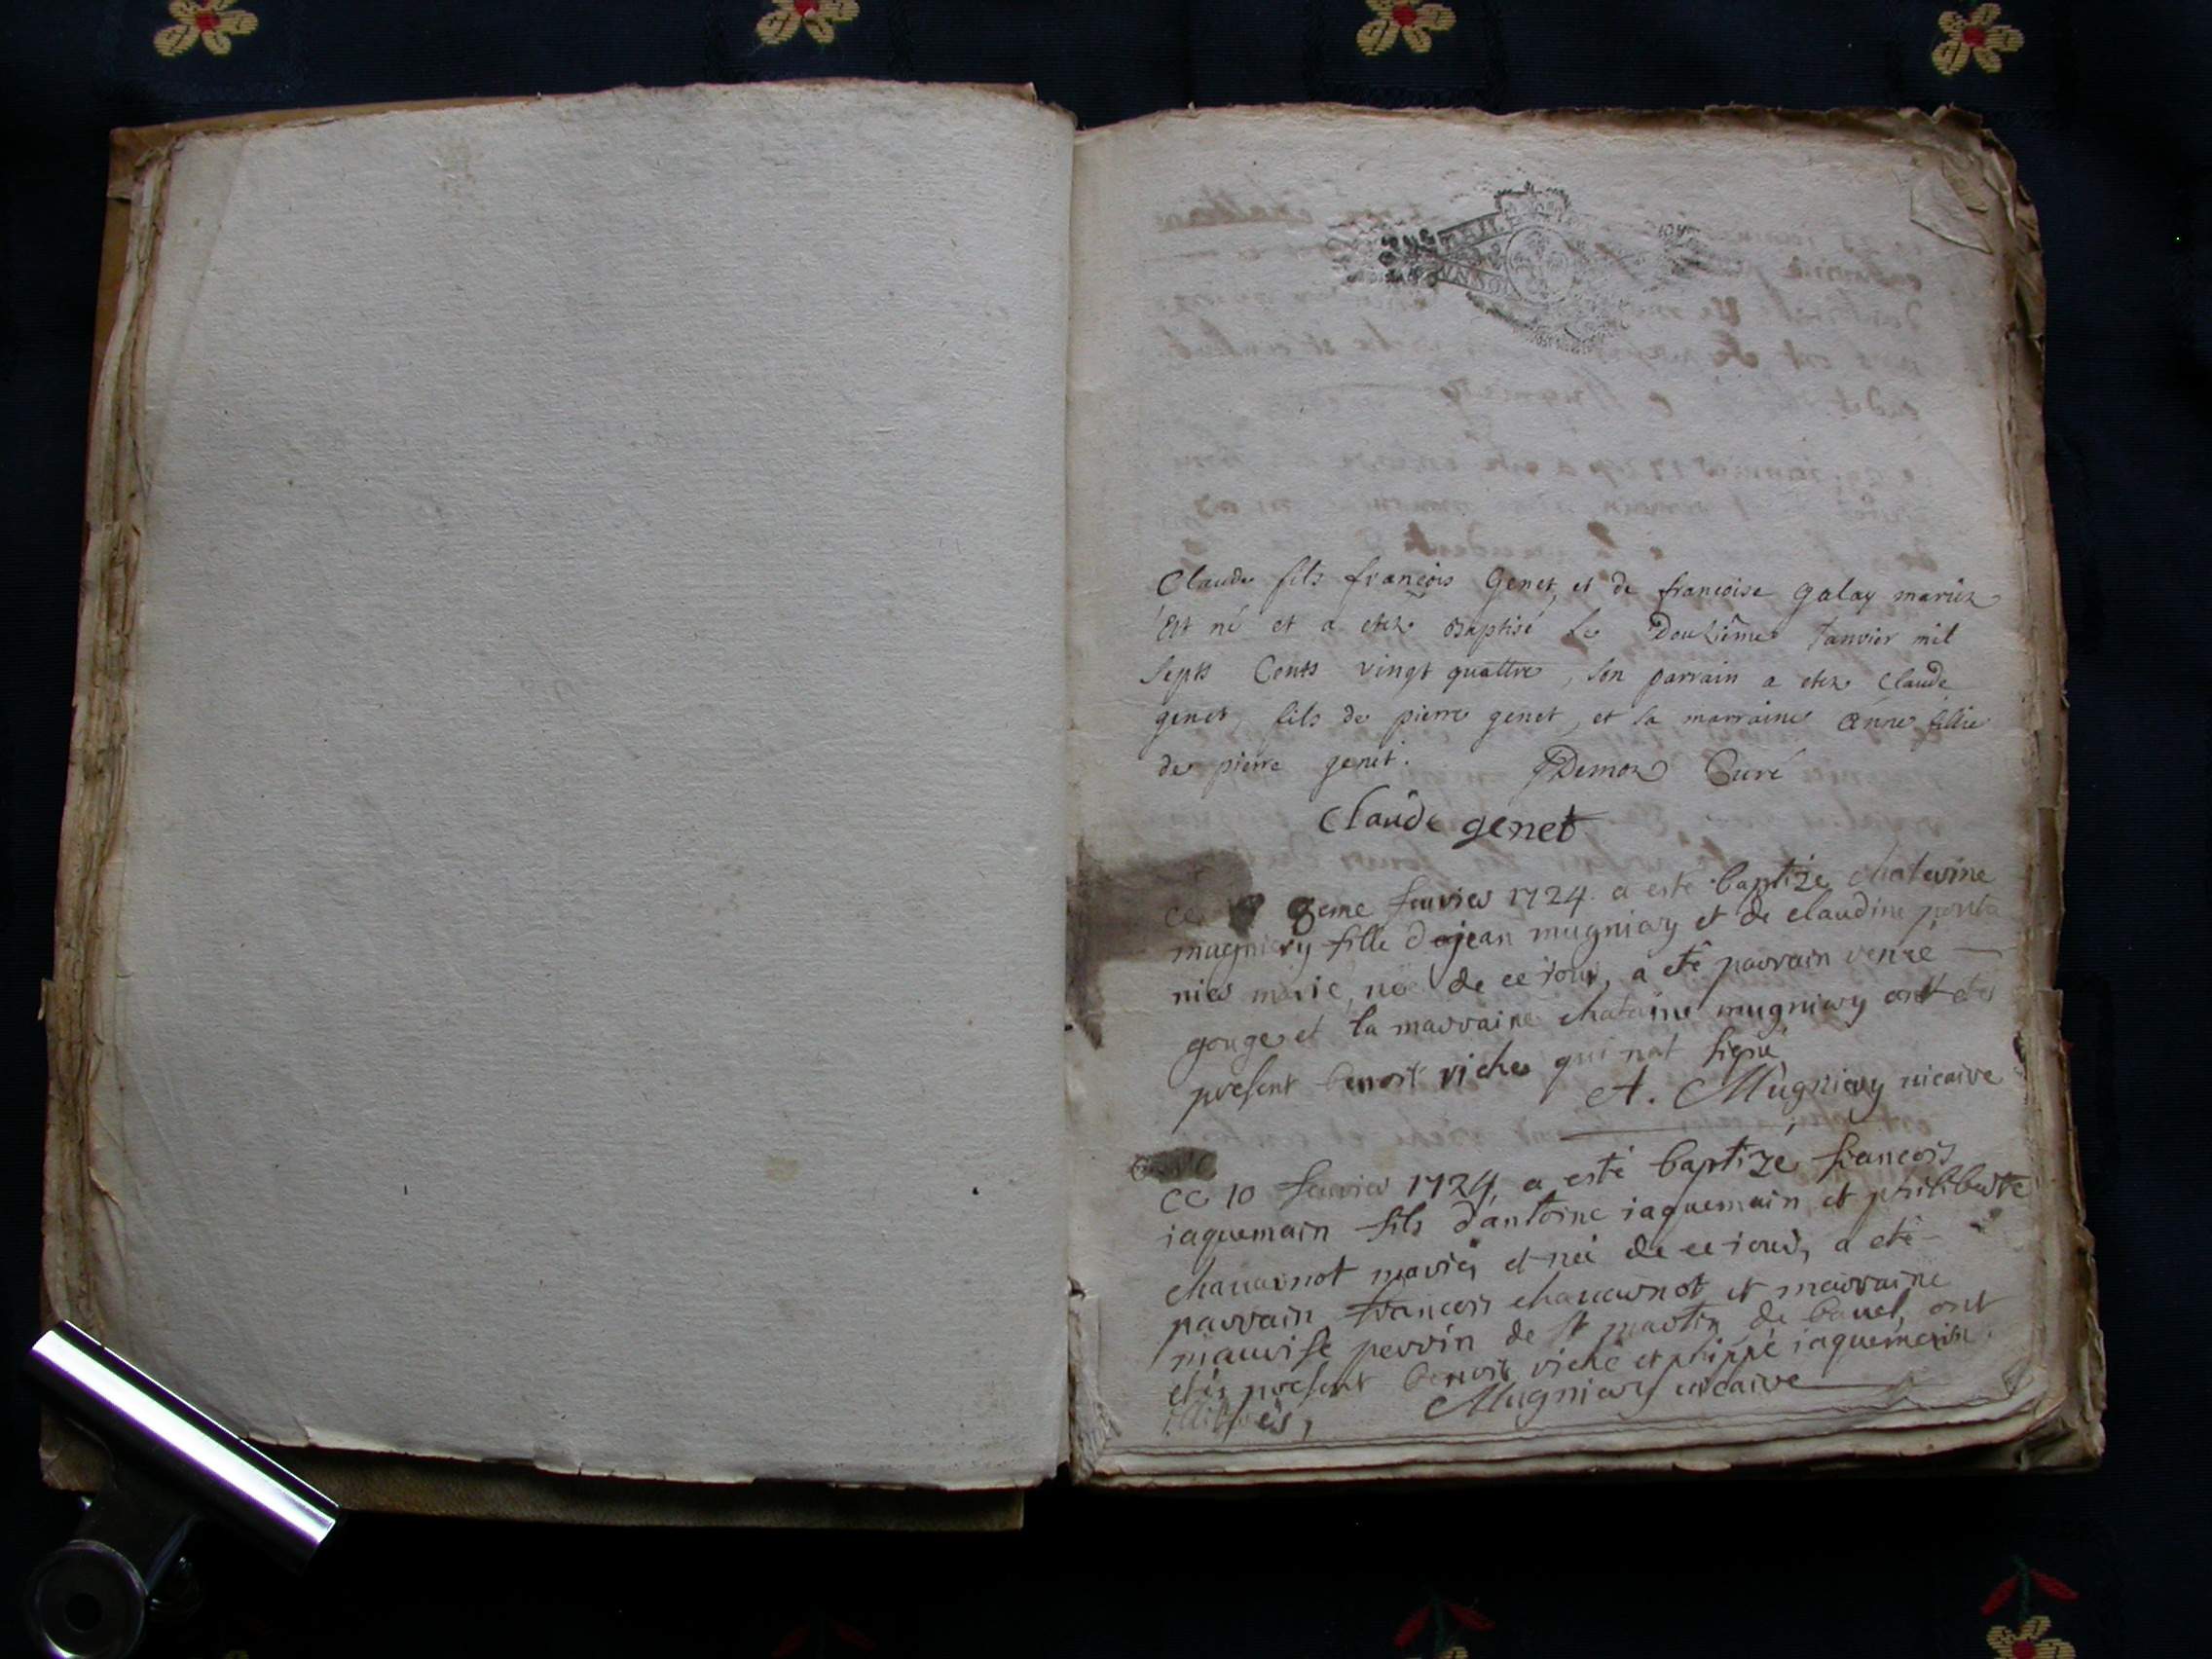 Claude fils francois Genet, et de francoise Galay mariez
Est né et a etez Baptisé Le Douziême Janvier mil
Septs Cents vingt quattre, Son parrain a etez Claude
genet, fils de pierre genet, et sa marraine Anne fillie
de pierre genet. Demoz Curé
Claude genet
ce 8eme feuvier 1724 a esté baptize chaterine
mugniery fille de jean mugniery et de claudine
nier marie, née de ce iour, a eté parrain
gouge et la marraine mugniery ont etes
present benoit viche qui nat signé
A. Mugniery vicaire
ce 10 feuvier 1724, a esté baptizé francois
iaquemain fils dantoine iaquemain et philiberte
chauarnot mariés et né de ce iour, a eté
parrain francois chauarnot et marraine
maurise perrin de st martin de bauel, ont
etés present benoit viche et phippe iaquemain
Mugniery vicaire